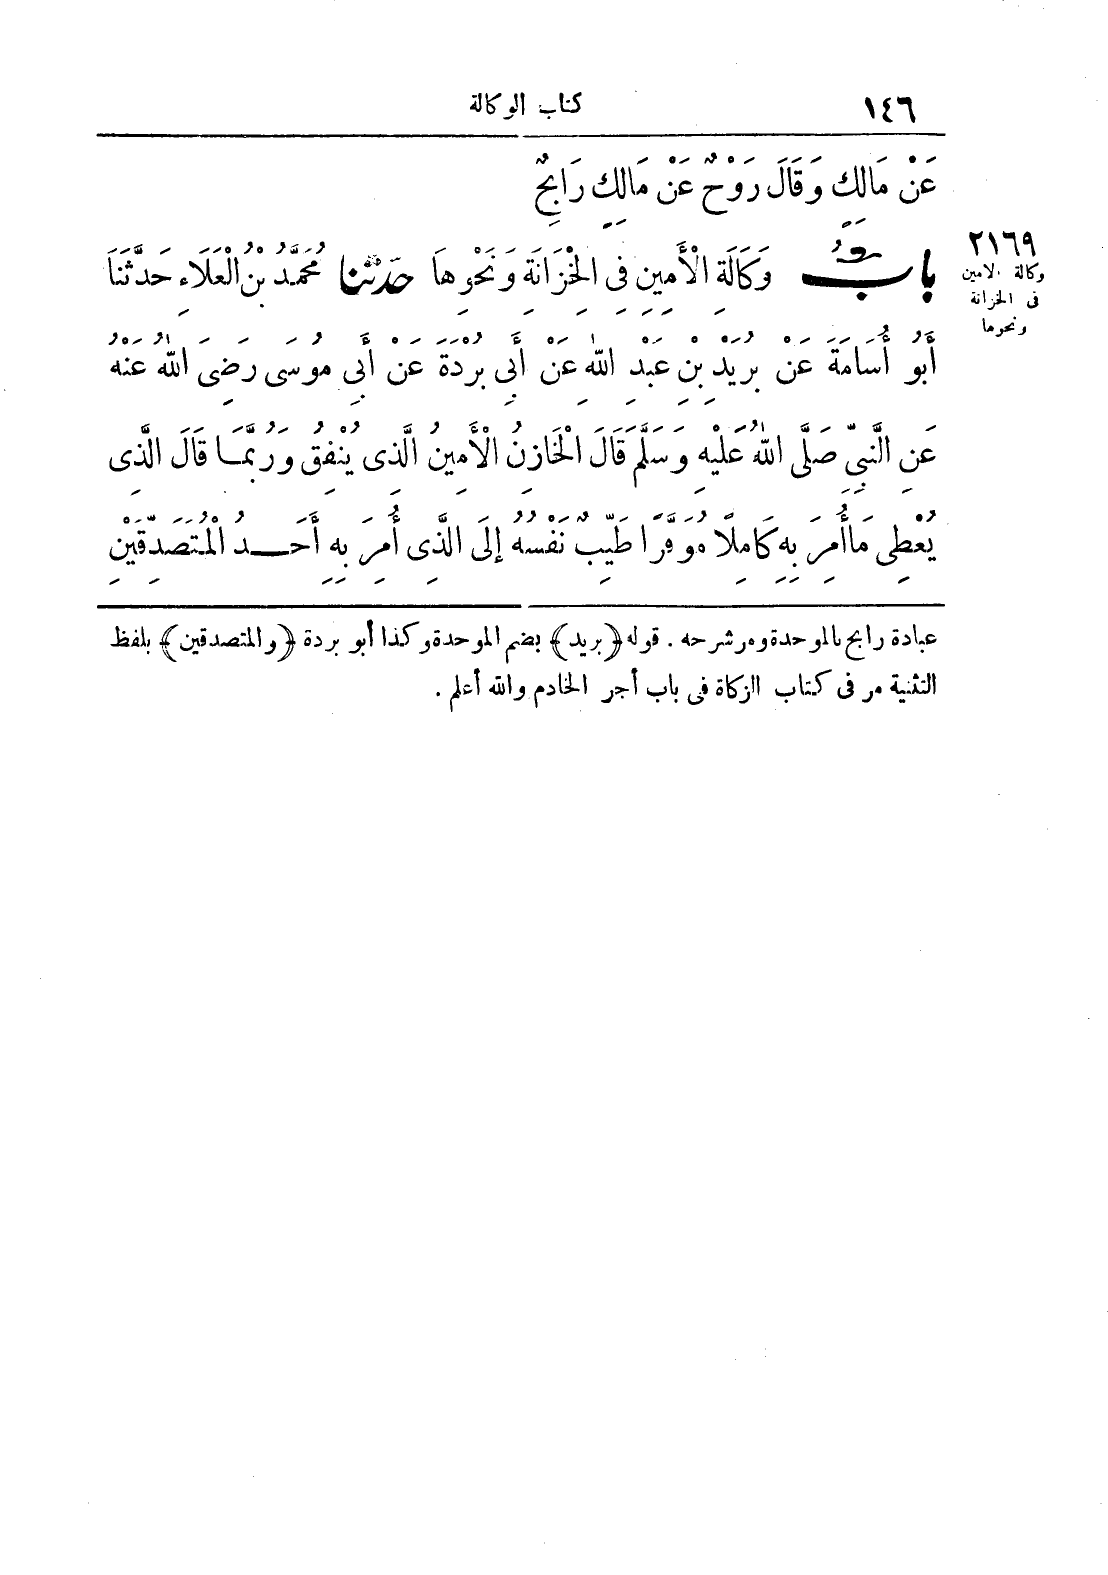 ١٤٦ كتاب الوكالة
عَنْ مَالِكٍ وَقَالَ رَوْحٌ عَنْ مَالِكٍ رَابِحٌ
٢١٦٩
وكالة الامين
فى الخزانة
ونحوها
بابُ وَكَالَةِ الْأَمِينِ فِى الخِزَانَةِ وَنَحْوِهَا حَدَّثَنَا مُحَمَّدُ بْنُ الْعَلَاءِ حَدَّثَنَا
أَبُو أُسَامَةَ عَنْ بُرَيْدِ بْنِ عَبْدِ اللهِ عَنْ أَبِى بُرْدَةَ عَنْ أَبِى مُوسَى رَضِىَ اللهُ عَنْهُ
عَنِ النَّبِىِّ صَلَّى اللهُ عَلَيْهِ وَسَلَّمَ قَالَ الْخَازِنُ الْأَمِينُ الَّذِى يُنْفِقُ وَرُبَّمَا قَالَ الَّذِى
يُعْطِى مَا أُمِرَ بِهِ كَامِلًا مُوَفَّرًا طَيِّبٌ نَفْسُهُ إِلَى الَّذِى أُمِرَ بِهِ أَحَدُ الْمُتَصَدِّقَيْنِ
عبادة رابح بالموحدة ومر شرحه . قوله ﴿بريد﴾ بضم الموحدة وكذا أبو بردة ﴿والمتصدقين﴾ بلفظ
التثنية مر فى كتاب الزكاة فى باب أجر الخادم والله أعلم .